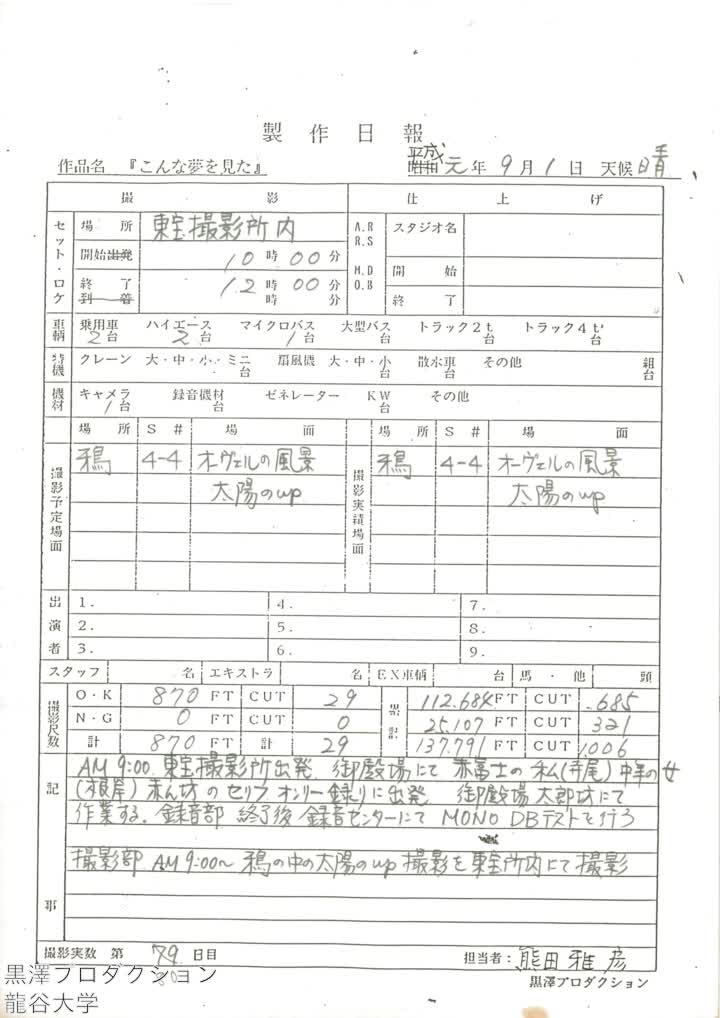 製作日報
作品名 『こんな夢を見た』 平成 昭和 元年 9月 1日 天候 晴
撮影 仕上げ
セット・ロケ 場所 東宝撮影所内 A.R R.S M.D O.B スタジオ名
開始 出発 10時00分
終了 到着 12時00分 開始
時 分 終了
車輌 乗用車 2台 ハイエース 2台 マイクロバス 1台 大型バス 台 トラック2t 台 トラック4t 台
特機 クレーン 大・中・小・ミニ 台 扇風機 大・中・小 台 散水車 台 その他 組 台
機材 キャメラ 1台 録音機材 台 ゼネレーター KW 台 その他
場所 S# 場面 場所 S# 場面
撮影予定場面 鴉 4-4 オーヴェルの風景 撮影実績場面 鴉 4-4 オーヴェルの風景
太陽のup 太陽のup
出演者 1. 4. 7.
2. 5. 8.
3. 6. 9.
スタッフ 名 エキストラ 名 EX車輌 台 馬・他 頭
撮影尺数 O・K 870 FT CUT 29 累計 112.684 FT CUT 685
N・G 0 FT CUT 0 25.107 FT CUT 321
計 870 FT 計 29 137.791 FT CUT 1.006
記事
AM 9:00 東宝撮影所出発 御殿場にて 赤富士の 私(寺尾) 中年の女
(根岸) 赤ん坊 のセリフ オンリー録りに出発 御殿場太郎坊にて
作業する。録音部 終了後 録音センターにて MONO DBテストを行う
撮影部 AM 9:00〜 鴉の中の太陽のup 撮影を東宝所内にて撮影
撮影実数 第 79 日目 担当者: 熊田雅彦
80
黒澤プロダクション
黒澤プロダクション
龍谷大学